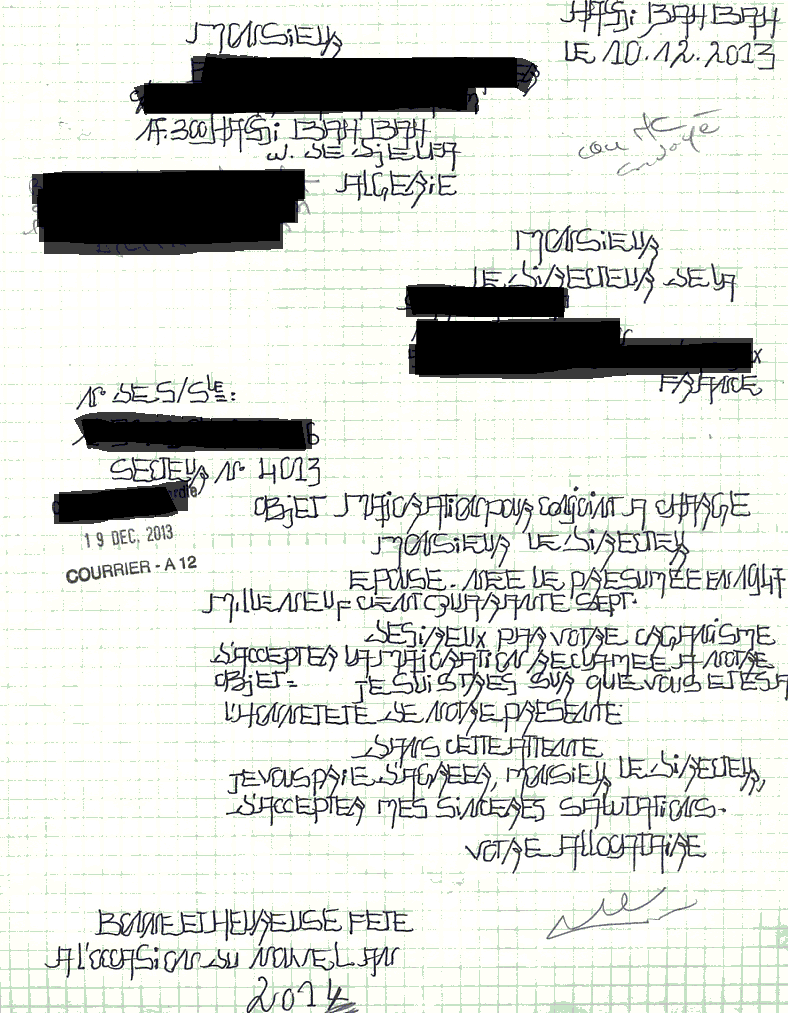 HASSi BAH BAH
LE 10.12.2013
MONSIEUR
17.300 HASSi BAH BAH
W. DE DJELFA
ALGERIE
envoyé
MONSIEUR
LE DIRECTEUR DE LA
FRANCE
N° DE S/S LE:
SECTEUR N° 4013
19 DEC. 2013
COURRIER - A 12
OBJET MAJORATION POUR CONJOINT A CHARGE
MONSIEUR LE DIRECTEUR
EPOUSE. NEE LE PRESUMEE EN 1947
MILLE NEUF CENT QUARANTE SEPT.
DESIREUX PAR VOTRE ORGANISME
D'ACCEPTER LA MAJORATION RECLAMEE A NOTRE
OBJET= JE SUIS TRES SUR QUE VOUS ETES A
L'HONNETETE DE NOTRE PRESENTE
DANS CETTE ATTENTE
JE VOUS PRIE D'AGREER, MONSIEUR LE DIRECTEUR,
D'ACCEPTER MES SINCERES SALUTATIONS.
VOTRE ALLOCATAIRE
BONNE ET HEUREUSE FETE
A L'OCCASION DU NOUVEL AN
2014